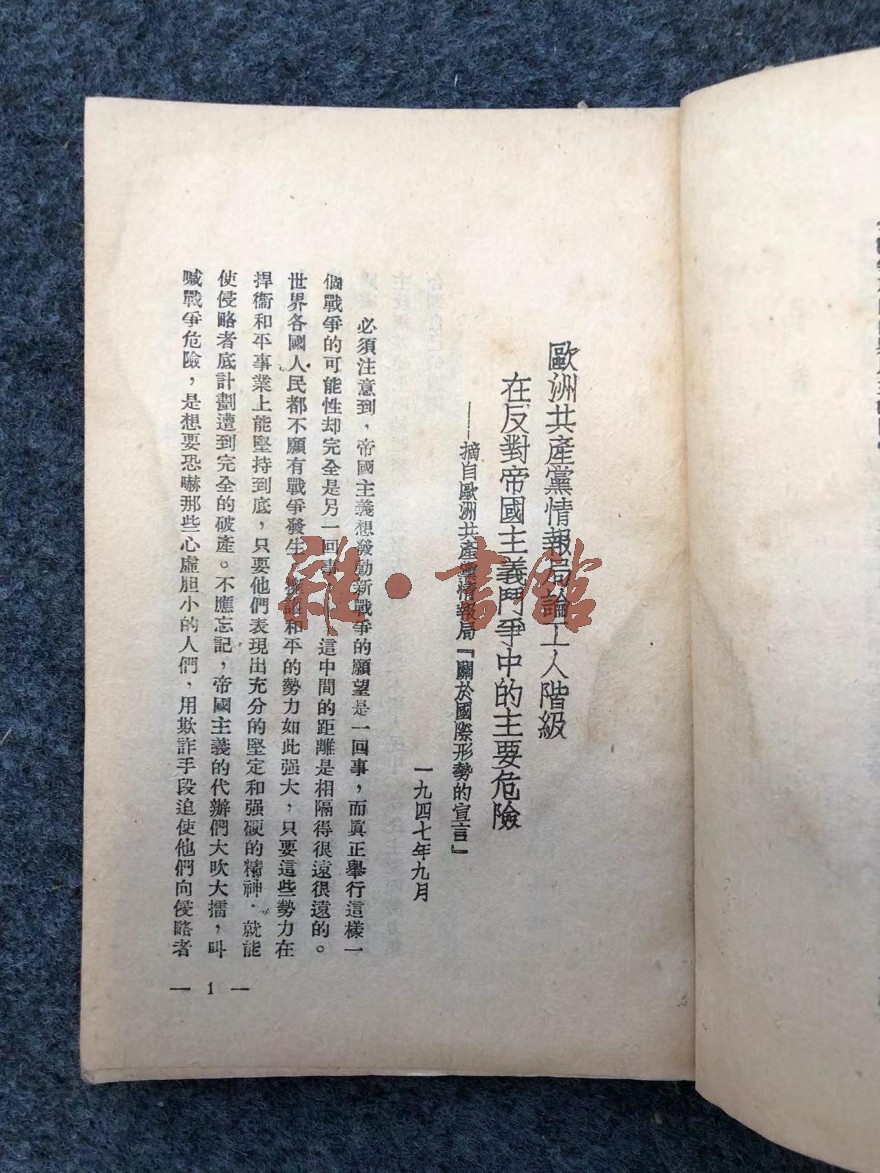 歐洲共產黨情報局論工人階級
在反對帝國主義鬥爭中的主要危險
——摘自歐洲共產黨情報局『關於國際形勢的宣言』
一九四七年九月
必須注意到，帝國主義想發動新戰爭的願望是一回事，而眞正舉行這樣一
個戰爭的可能性却完全是另一回事。這中間的距離是相隔得很遠很遠的。
世界各國人民都不願有戰爭發生，擁護和平的勢力如此强大，只要這些勢力在
捍衞和平事業上能堅持到底，只要他們表現出充分的堅定和强硬的精神，就能
使侵略者底計劃遭到完全的破產。不應忘記，帝國主義的代辦們大吹大擂，叫
喊戰爭危險，是想要恐嚇那些心虛胆小的人們，用欺詐手段迫使他們向侵略者
— 1 —
雜·書館